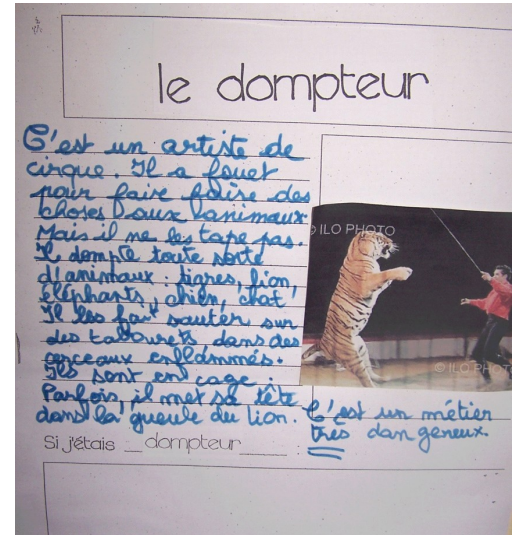 le dompteur
C'est un artiste de
cirque. Il a fouet
pour faire faire des
choses aux animaux.
Mais il ne les tape pas.
Il dompte toute sorte
d'animaux : tigres, lion,
éléphants, chien, chat
Il les fait sauter sur
des tabourets, dans des
cerceaux enflammés.
Ils sont en cage.
Parfois, il met sa tête
dans la gueule du lion.
C'est un métier
très dangereux.
Si j'étais dompteur
ILO PHOTO
© ILO PHOT